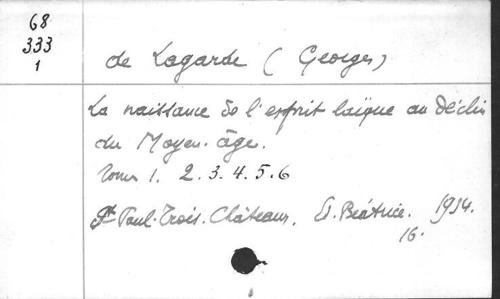 68
333
1
de Lagarde (Georges)
La naissance de l'esprit laïque au Déclin
du Moyen-âge.
Tomes 1. 2. 3. 4. 5. 6
St Paul-Trois-Châteaux, Ed. Béatrice. 1934.
16.